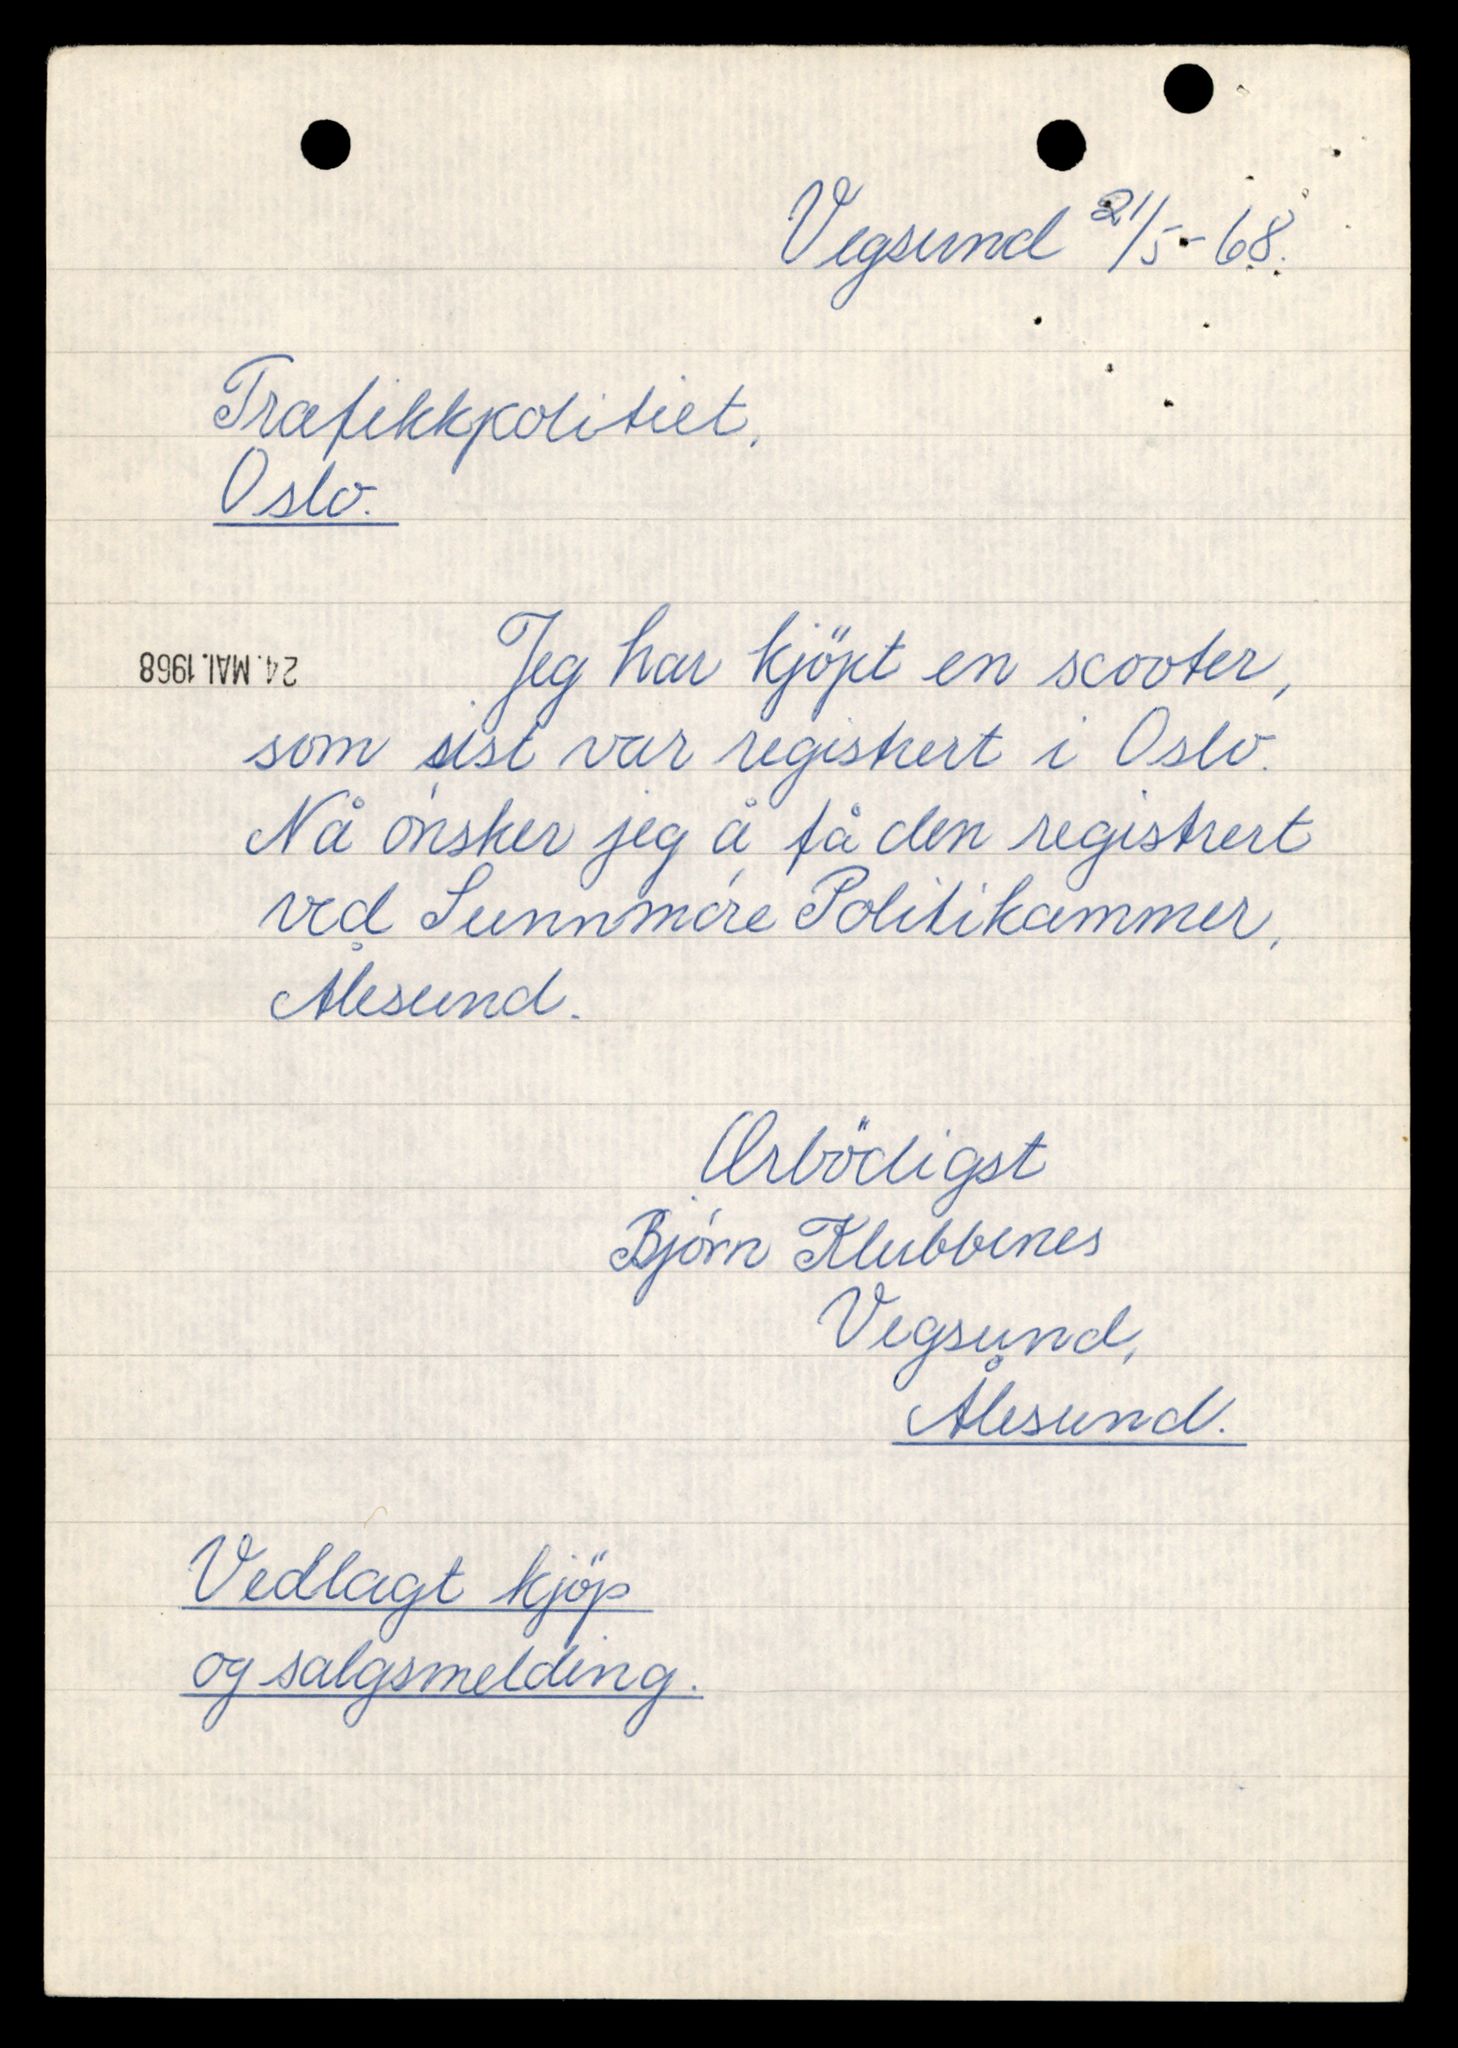 Vegsund 21/5-68.
Trafikkpolitiet,
Oslo.
24. MAI. 1968
Jeg har kjöpt en scooter,
som sist var registert i Oslo.
Nå ónsker jeg å få den registrert
ved Sunnmóre Politikammer,
Ålesund.
Ærbödigst
Bjórn Klubbenes
Vegsund,
Ålesund.
Vedlagt kjöp
og salgsmelding.